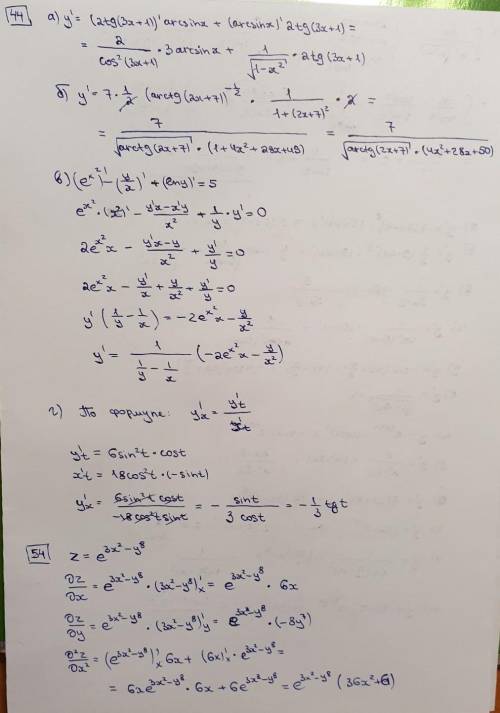 44 а) y' = (2tg(3x+1))' arcsinx + (arcsinx)' 2tg(3x+1) =
= \frac{2}{cos²(3x+1)} · 3 arcsinx + \frac{1}{\sqrt{1-x²}} · 2tg(3x+1)
б) y' = 7 · \frac{1}{2} (arctg(2x+7))^{-\frac{1}{2}} · \frac{1}{1+(2x+7)²} · 2 =
= \frac{7}{\sqrt{arctg(2x+7)} · (1+4x²+28x+49)} = \frac{7}{\sqrt{arctg(2x+7)} · (4x²+28x+50)}
в) (e^{x²})' - (\frac{y}{x})' + (lny)' = 5
e^{x²} · (x²)' - \frac{y'x-x'y}{x²} + \frac{1}{y} · y' = 0
2e^{x²}x - \frac{y'x-y}{x²} + \frac{y'}{y} = 0
2e^{x²}x - \frac{y'}{x} + \frac{y}{x²} + \frac{y'}{y} = 0
y' (\frac{1}{y} - \frac{1}{x}) = -2e^{x²}x - \frac{y}{x²}
y' = \frac{1}{\frac{1}{y} - \frac{1}{x}} (-2e^{x²}x - \frac{y}{x²})
г) По формуле: y'x = \frac{y't}{x't}
y't = 6sin²t · cost
x't = 18cos²t · (-sint)
y'x = \frac{6sin²t cost}{-18cos²t sint} = - \frac{sint}{3 cost} = - \frac{1}{3} tgt
54 z = e^{3x²-y⁸}
\frac{∂z}{∂x} = e^{3x²-y⁸} · (3x²-y⁸)'x = e^{3x²-y⁸} · 6x
\frac{∂z}{∂y} = e^{3x²-y⁸} · (3x²-y⁸)'y = e^{3x²-y⁸} · (-8y⁷)
\frac{∂²z}{∂x²} = (e^{3x²-y⁸})'x 6x + (6x)'x · e^{3x²-y⁸} =
= 6xe^{3x²-y⁸} · 6x + 6e^{3x²-y⁸} = e^{3x²-y⁸} (36x²+6)